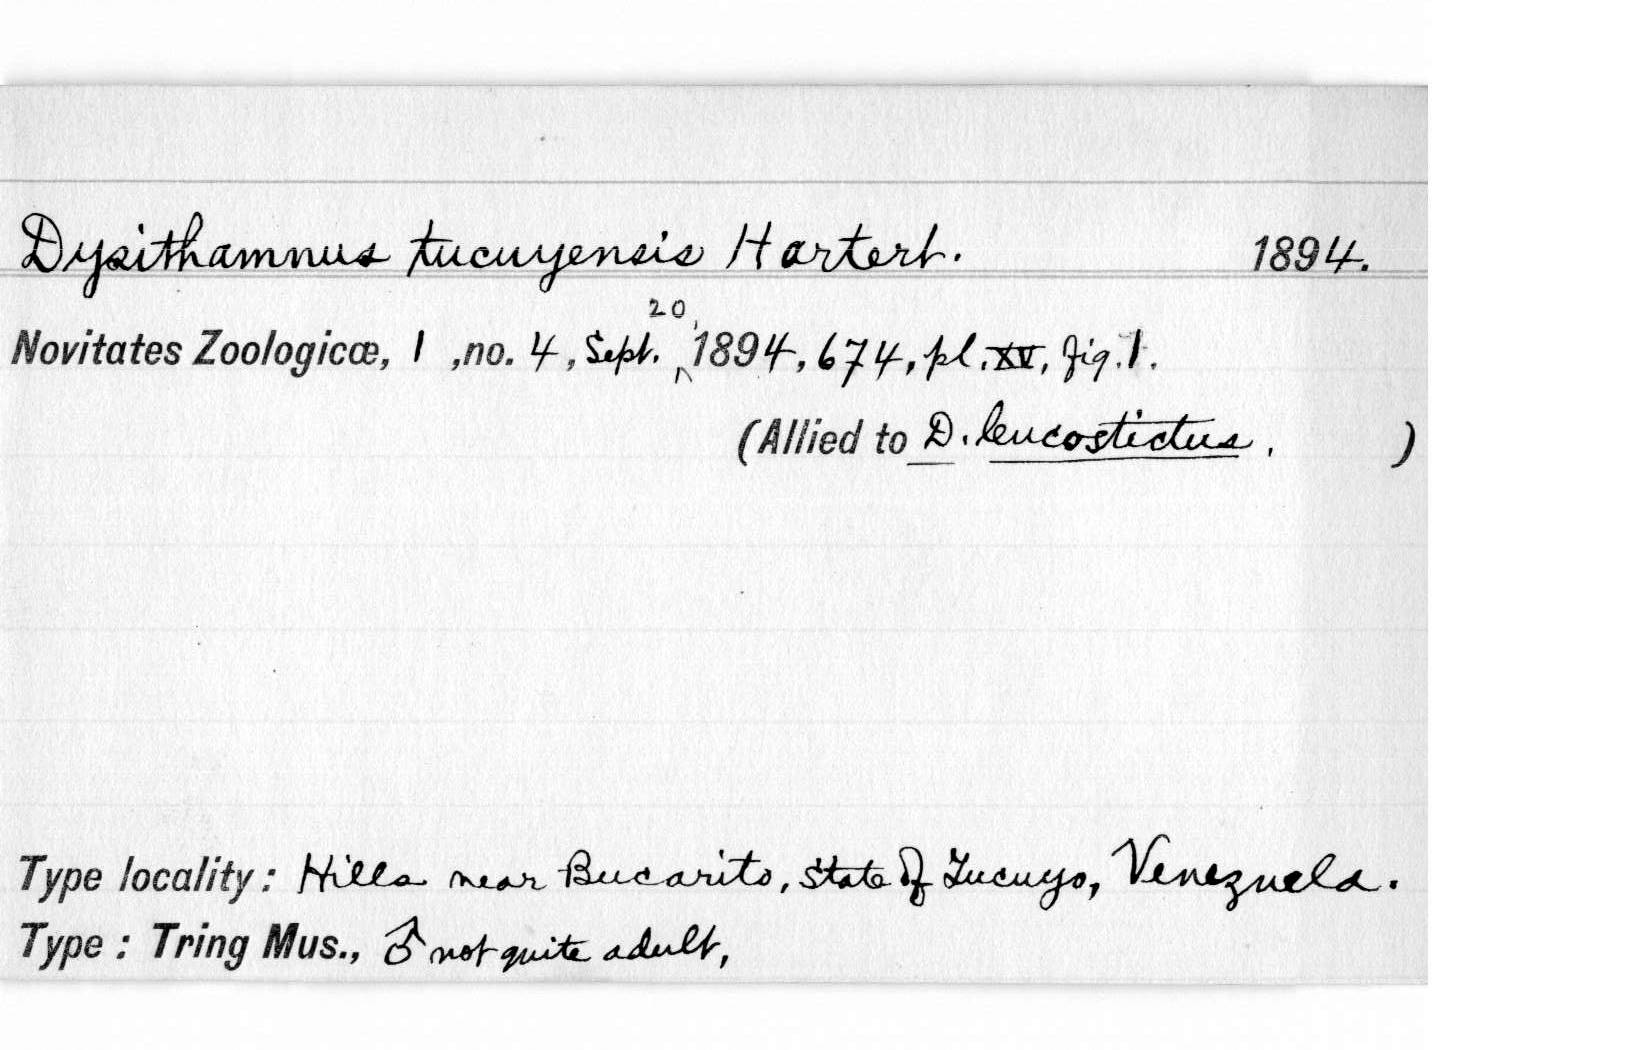 Dysithamnus tucuyensis Hartert. 1894.
Novitates Zoologicæ, 1, no. 4, Sept. 20, 1894, 674, pl. XV, fig. 1.
(Allied to D. leucostictus. )
Type locality: Hills near Bucarito, State of Tucuyo, Venezuela.
Type: Tring Mus., ♂ not quite adult,